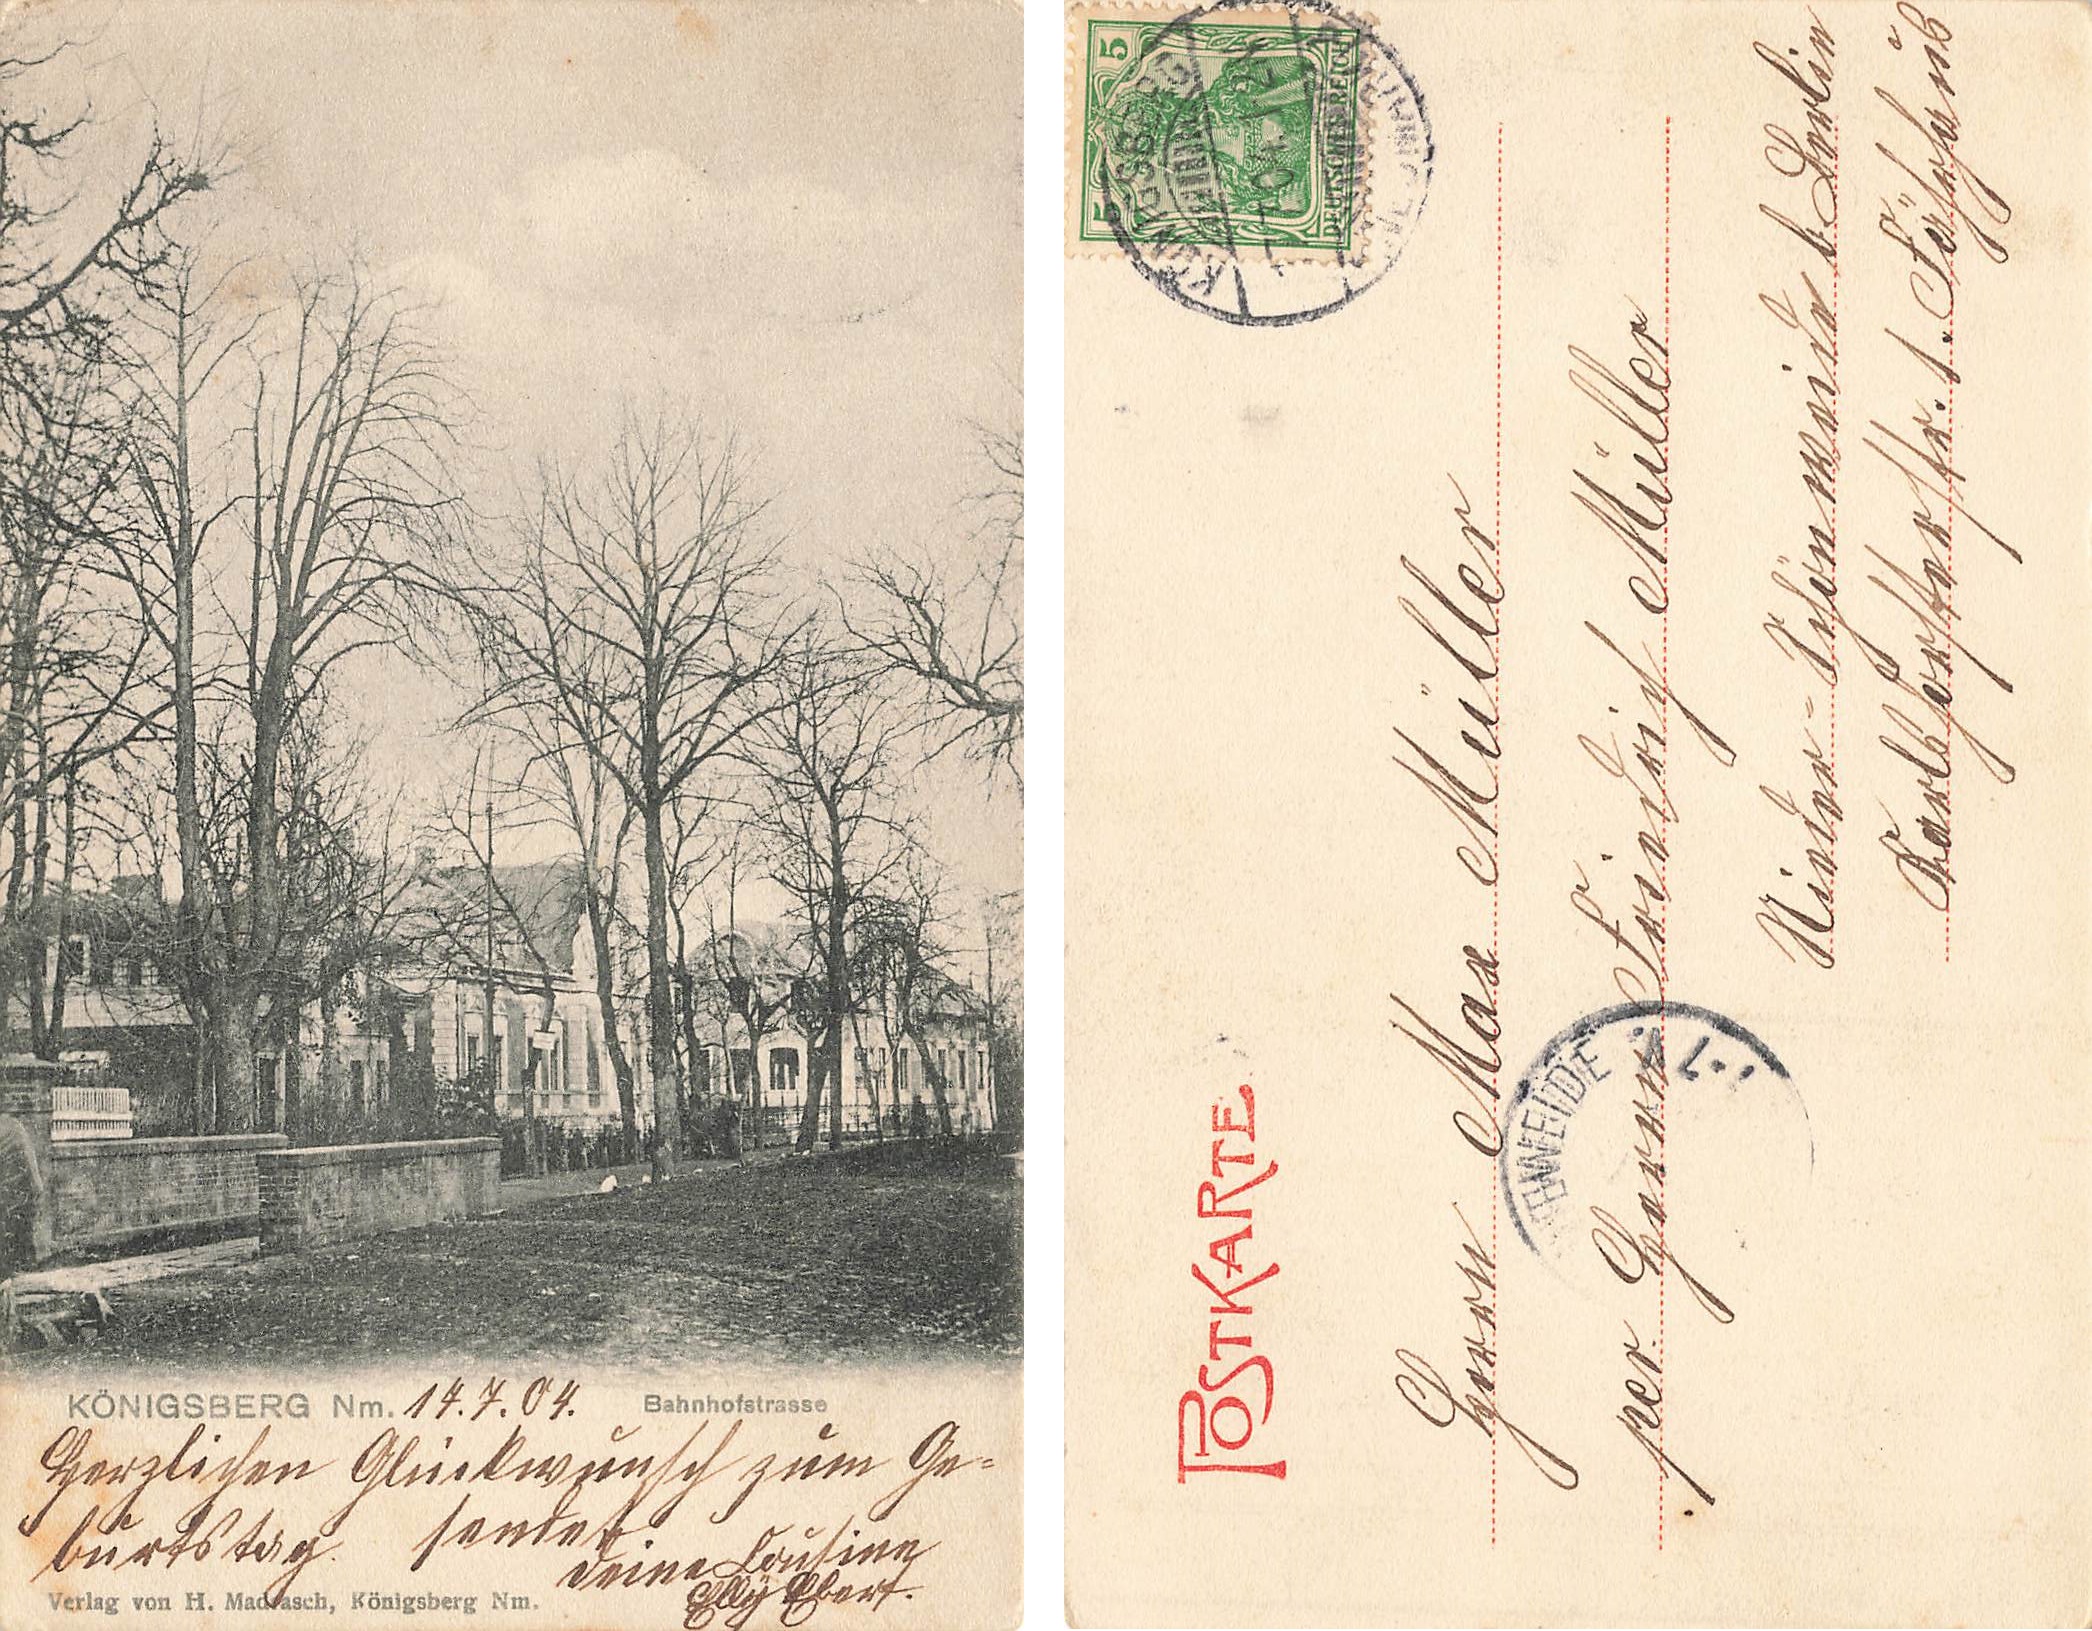 KÖNIGSBERG Nm. 14.7.04. Bahnhofstrasse
Herzlichen Glückwunsch zum Ge-
burtstag sendet
deine Cousine
Elly Ebert.
Verlag von H. Madrasch, Königsberg Nm.
5 5
DEUTSCHES REICH
KÖNIGSBERG
POSTKARTE
Herrn Max Müller
per Herrn Friedrich Müller
Nieder-Schönweide b. Berlin
Karlshorsterstr. 1. Färbhaus